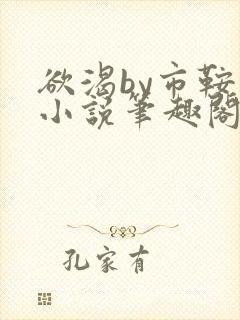 欲渴by市鞍
小说笔趣阁
孔家有